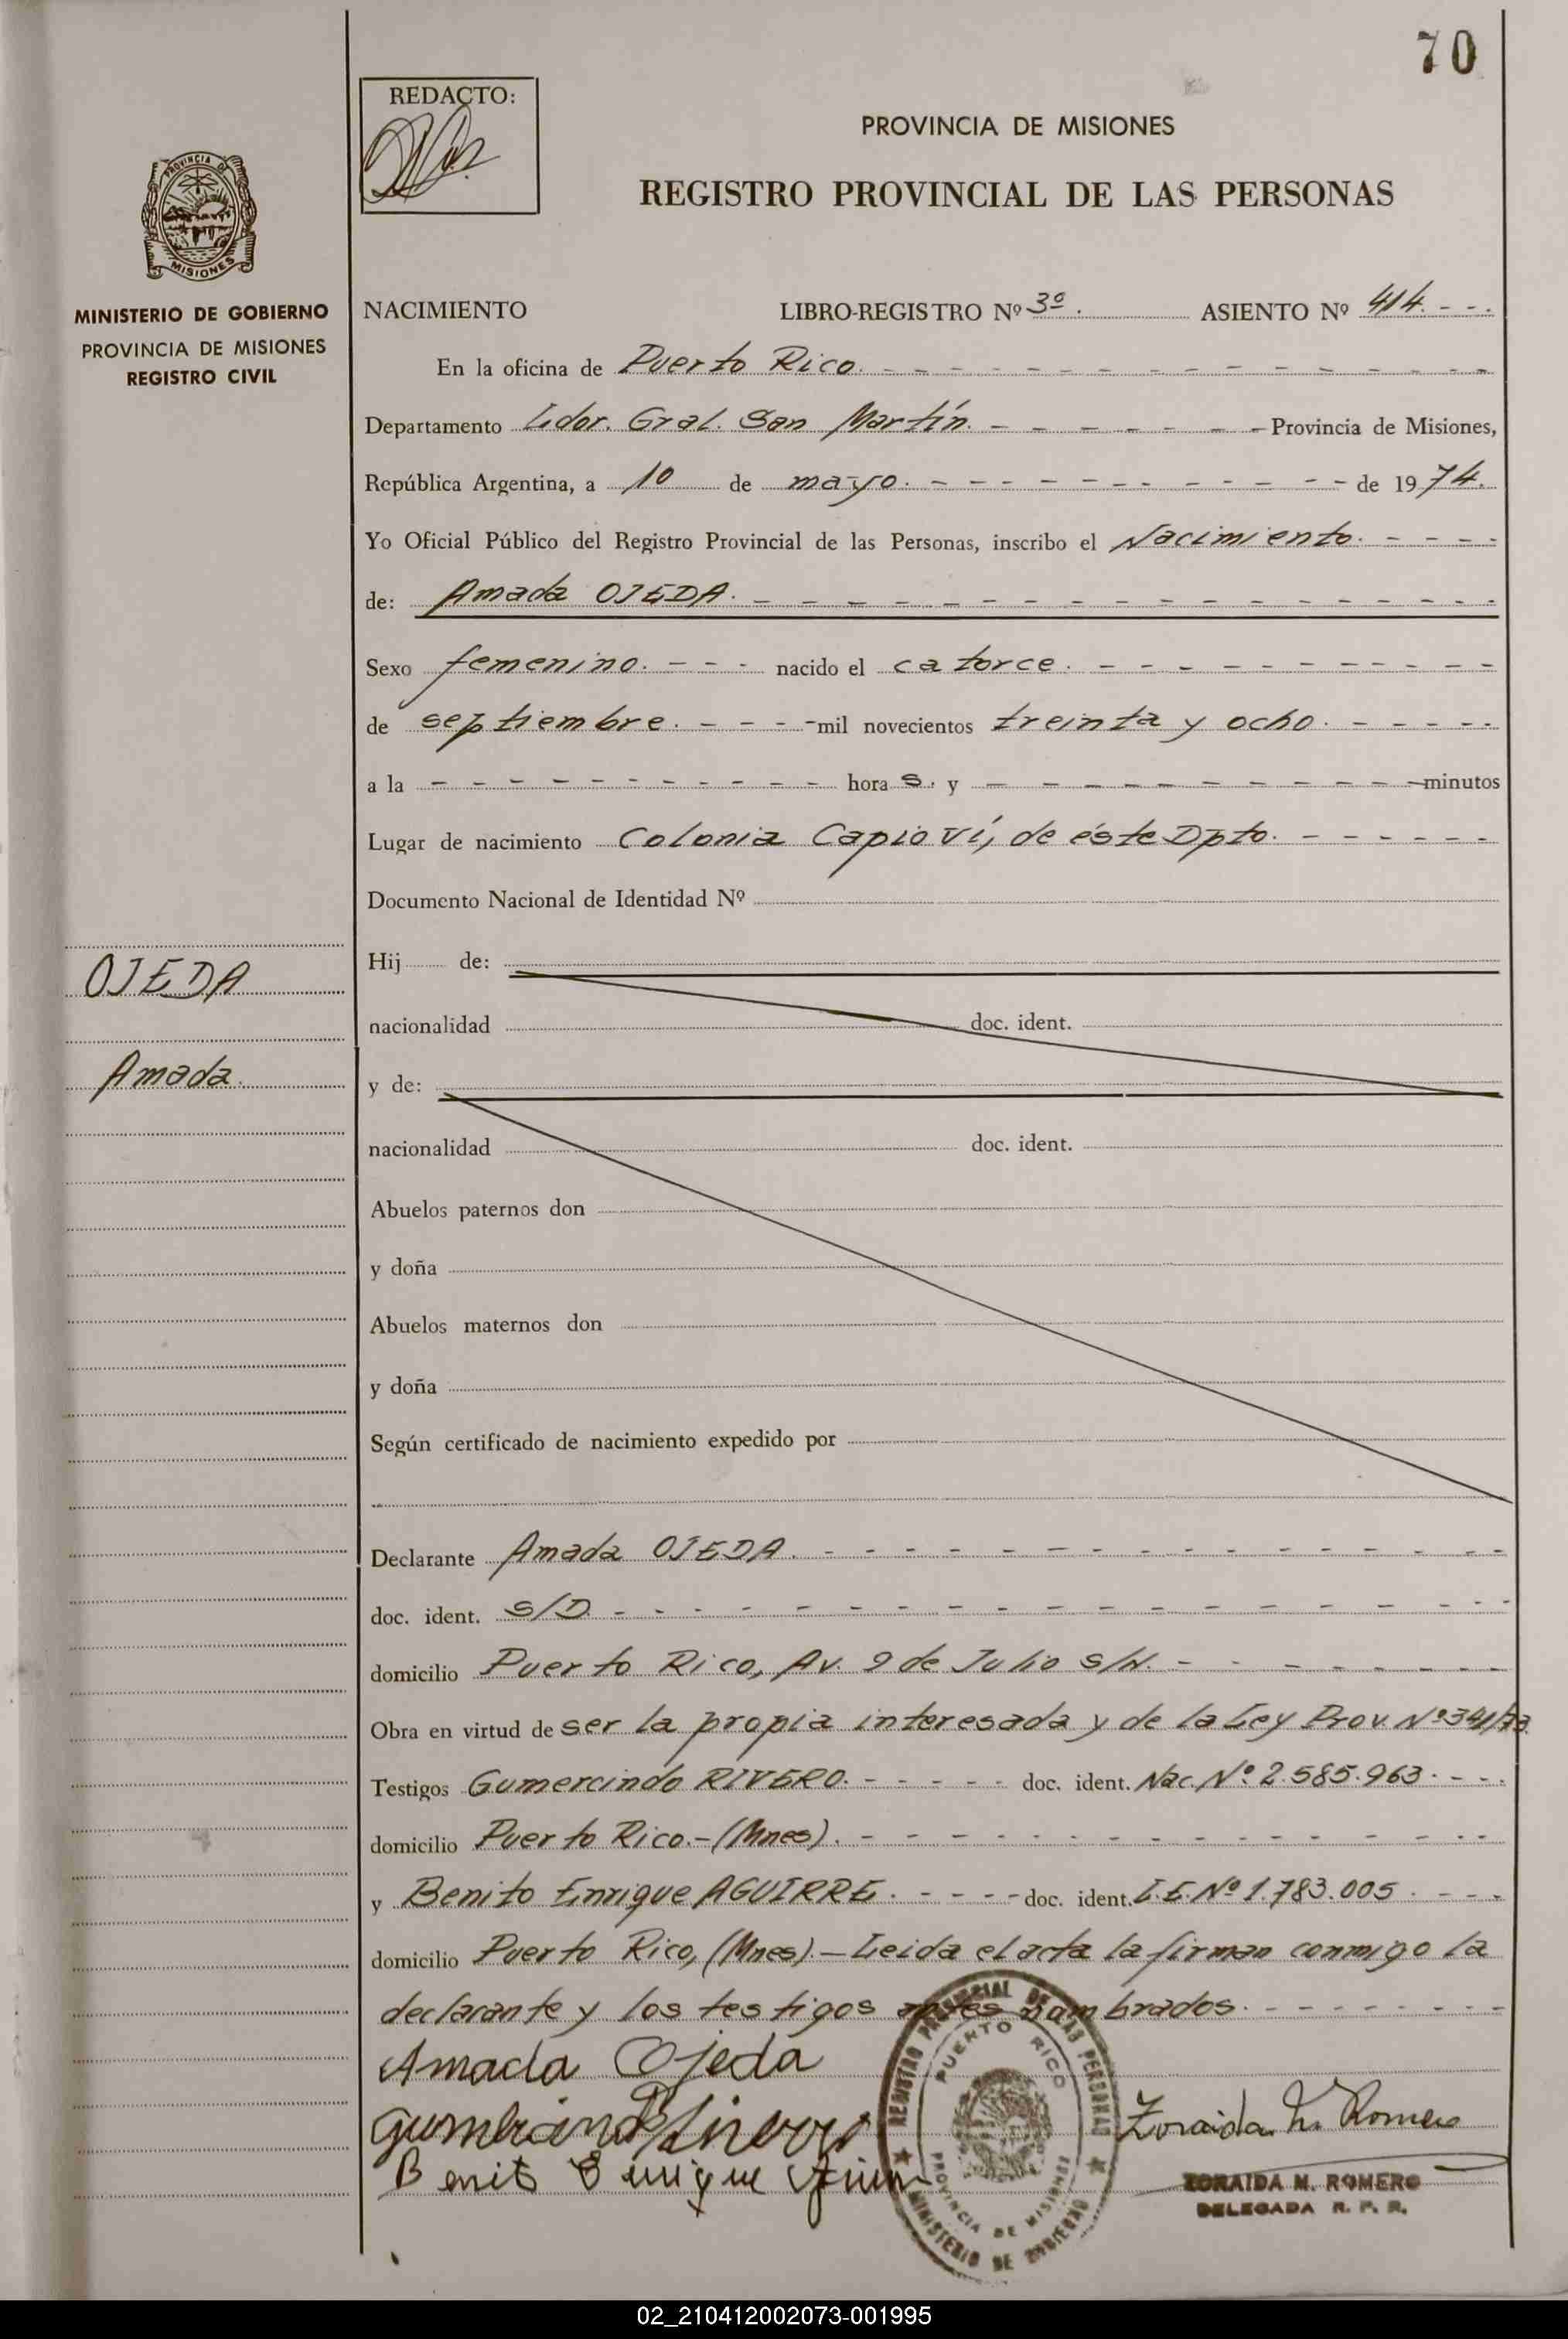 70
REDACTO:
PROVINCIA DE MISIONES
REGISTRO PROVINCIAL DE LAS PERSONAS
PROVINCIA DE
MISIONES
MINISTERIO DE GOBIERNO
PROVINCIA DE MISIONES
REGISTRO CIVIL
NACIMIENTO LIBRO-REGISTRO Nº 3º. ASIENTO Nº 414. - - .
En la oficina de Puerto Rico. - - - - - - - - - - - - - -
Departamento Ldor. Gral. San Martín. - - - - - - - Provincia de Misiones,
República Argentina, a 10 de mayo. - - - - - - - - - - - de 1974.
Yo Oficial Público del Registro Provincial de las Personas, inscribo el Nacimiento. - - - -
de: Amada OJEDA. - - - - - - - - - - - - - - - -
Sexo femenino. - - - nacido el catorce. - - - - - - - - - -
de septiembre. - - - - mil novecientos treinta y ocho. - - - - -
a la - - - - - - - - - - - hora s. y - - - - - - - - - - minutos
Lugar de nacimiento Colonia Capioví, de éste Dpto. - - - - - -
Documento Nacional de Identidad Nº
Hij de:
OJEDA
nacionalidad doc. ident.
Amada.
y de:
nacionalidad doc. ident.
Abuelos paternos don
y doña
Abuelos maternos don
y doña
Según certificado de nacimiento expedido por
Declarante Amada OJEDA. - - - - - - - - - - - - - - -
doc. ident. S/D. - - - - - - - - - - - - - - - - - -
domicilio Puerto Rico, Av. 9 de Julio S/N. - - - - - - - -
Obra en virtud de ser la propia interesada y de la Ley Prov. Nº 341/73
Testigos Gumercindo RIVERO. - - - - - doc. ident. Nac. Nº. 2.585.963. - - .
domicilio Puerto Rico.-(Mnes). - - - - - - - - - - - - - - -
y Benito Enrique AGUIRRE. - - - - doc. ident. L.E. Nº 1.783.005. - - .
domicilio Puerto Rico, (Mnes).- Leida el acta la firman conmigo la
declarante y los testigos antes nombrados. - - - - - - -
Amada Ojeda
REGISTRO PROVINCIAL DE LAS PERSONAS
PUERTO RICO
PROVINCIA DE MISIONES
MINISTERIO DE GOBIERNO
Gumercindo Rivero
Zoraida M. Romero
Benito Enrique
ZORAIDA M. ROMERO
DELEGADA R. P. R.
02_210412002073-001995